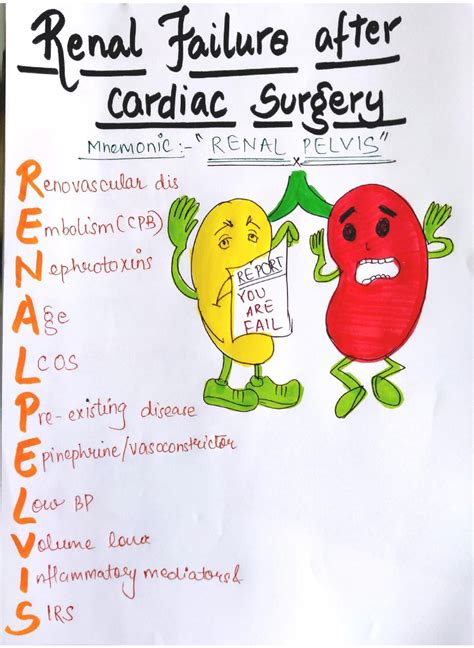 Renal Failure after
Cardiac Surgery
Mnemonic :- "RENAL PELVIS"
Renovascular dis
Embolism (CPB)
Nephrotoxins
Age
LCOS
Pre-existing disease
Epinephrine/vasoconstrictor
Low BP
Volume low
Inflammatory mediators
SIRS
REPORT
YOU
ARE
FAIL